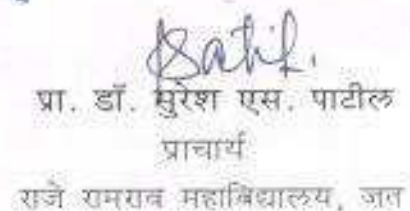 प्रा. डॉ. सुरेश एस. पाटील
प्राचार्य
राजे रामराव महाविद्यालय, जत